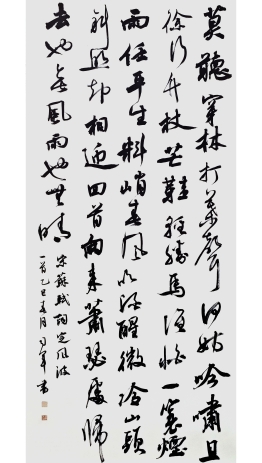 莫聽穿林打葉聲何妨吟嘯且
徐行竹杖芒鞋輕勝馬誰怕一蓑煙
雨任平生料峭春風吹酒醒微冷山頭
斜照却相迎回首向來蕭瑟處歸
去也無風雨也無晴
宋蘇軾詞定風波
一首乙巳